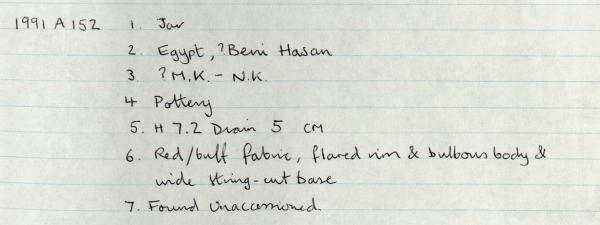 1991 A 152 1. Jar
2. Egypt, ?Beni Hasan
3 ?M.K. - N.K.
4 Pottery
5. H 7.2 Diam 5 CM
6. Red/buff fabric, flared rim & bulbous body &
wide string-cut base
7. Found Unaccessioned.